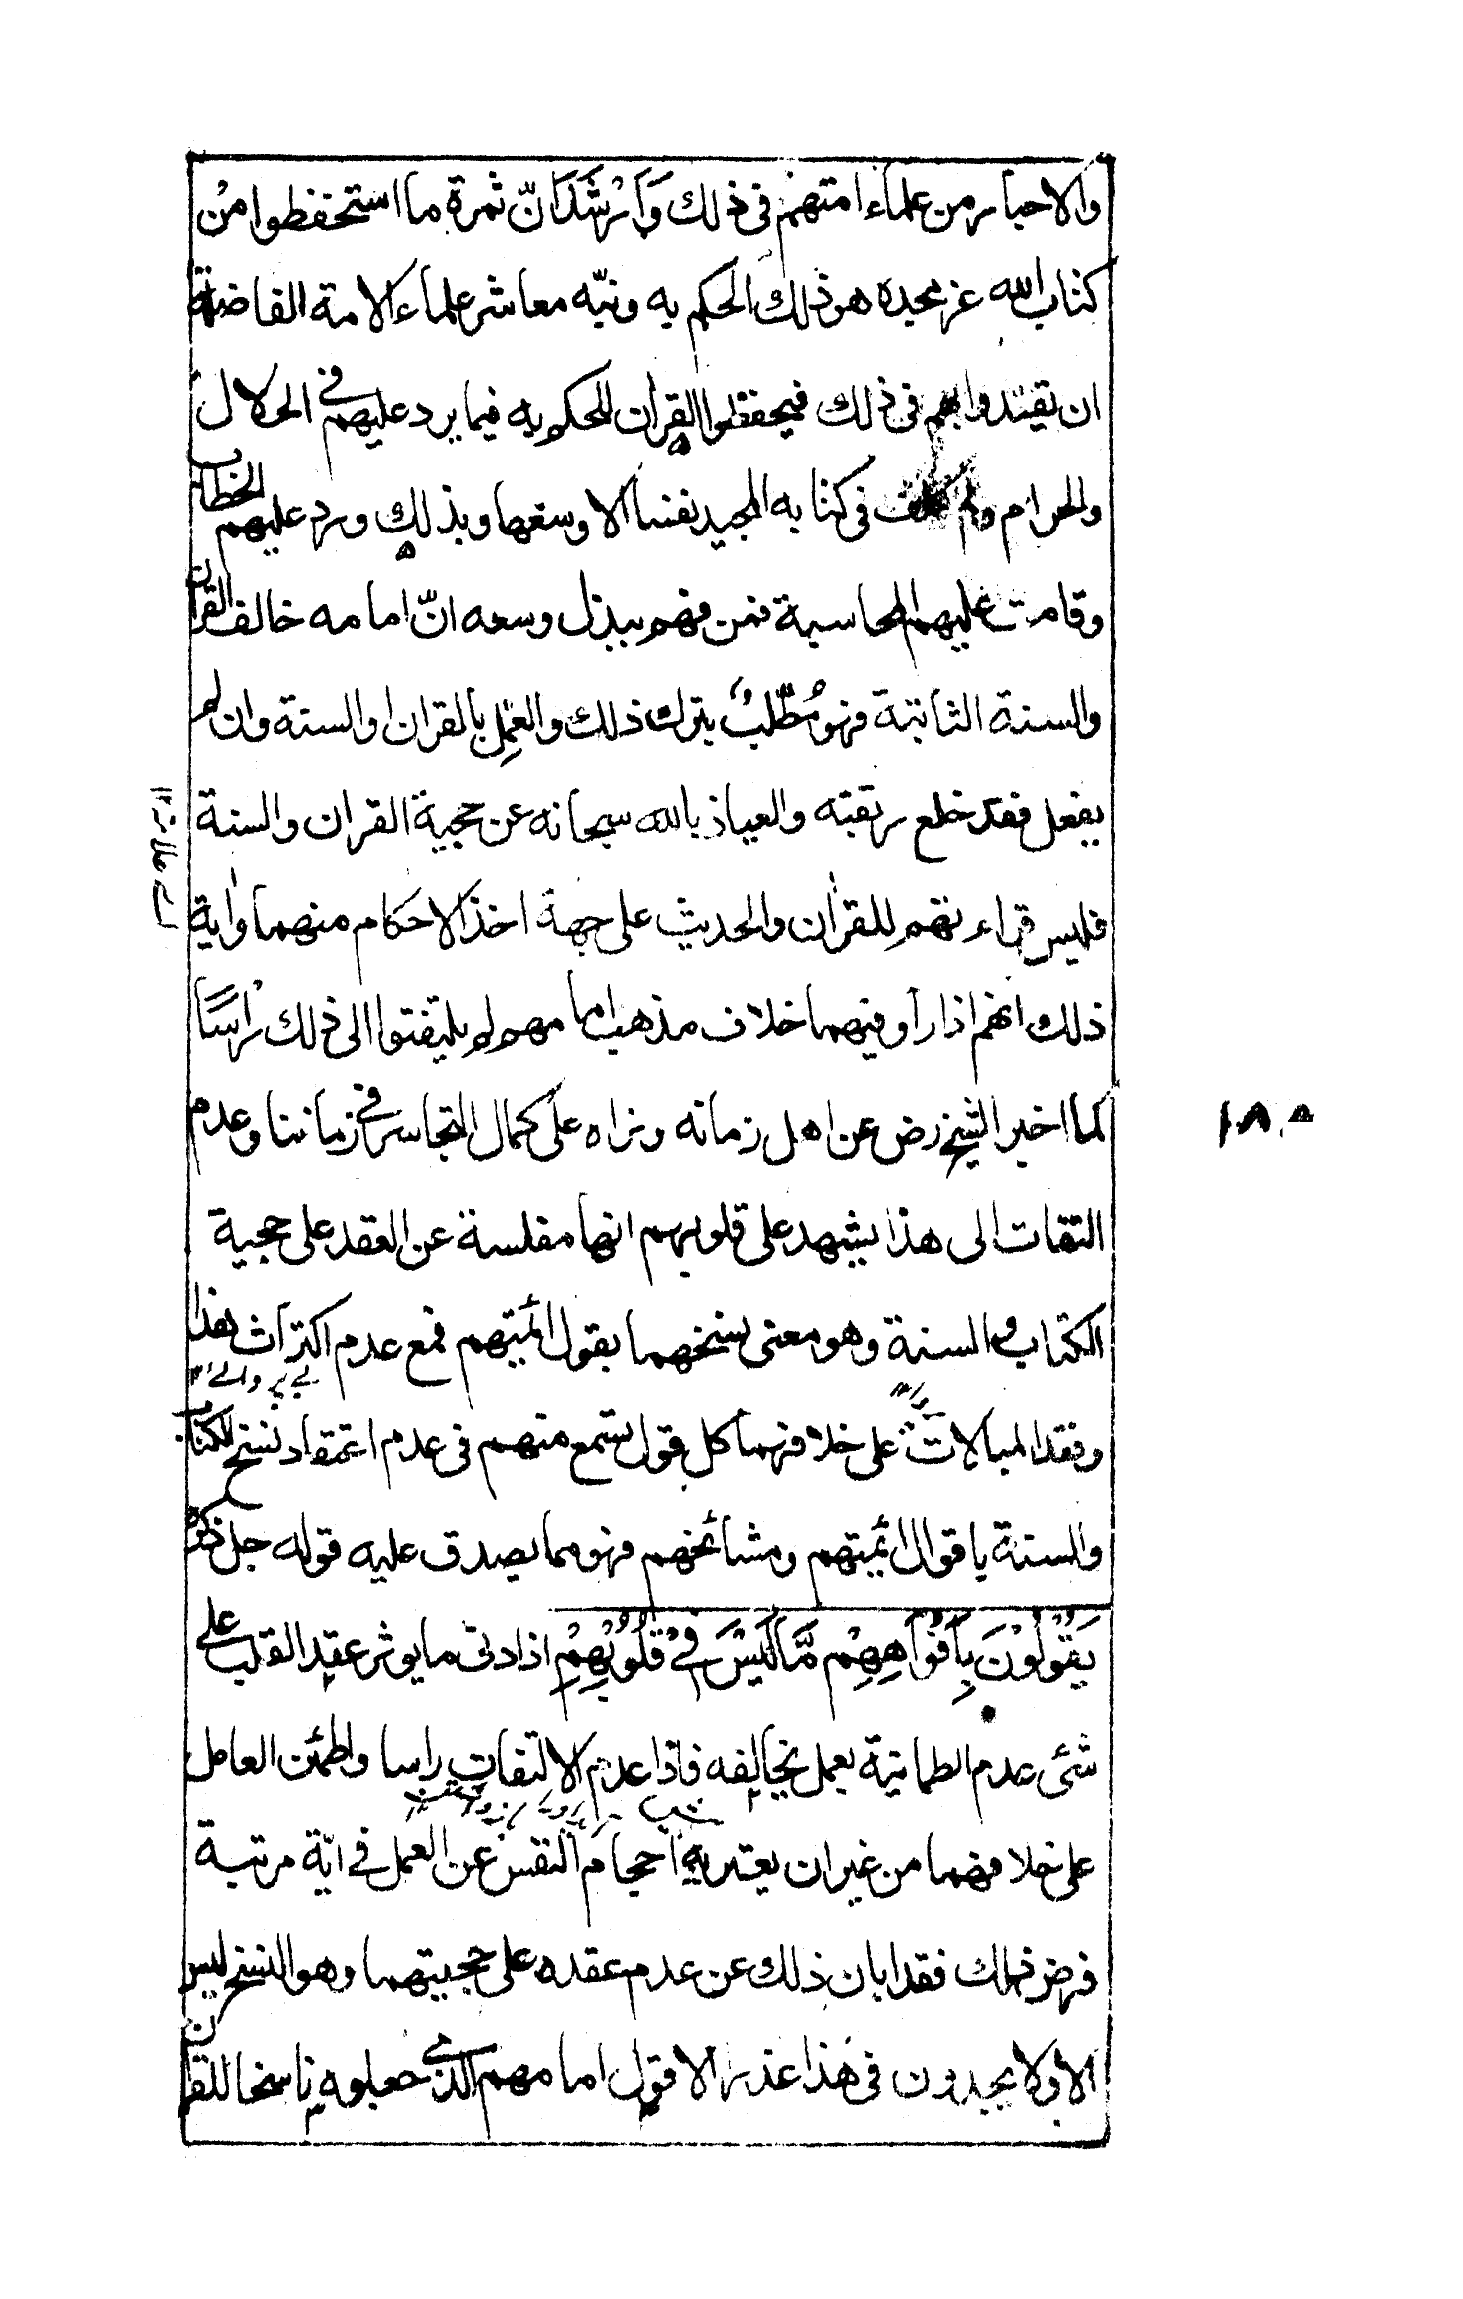 والاحبار من علماء امتهم فى ذلك وَاَرْشَدَ اَنّ ثمرة ما استحفظوا من
كتاب الله عز مجده هو ذلك الحكم به ونبّه معاشر علماء الامة الفاضلة
ان يقتدوا بهم فى ذلك فيحفظوا القران للحكم به فيما يرد عليهم فى الحلال
والحرام ولم يكلف فى كتابه المجيد نفسا الا وسعها وبذلك ورد عليهم الخطاب
وقامت عليهم المحاسبة فمن فهم ببذل وسعه انّ امامه خالف القران
والسنة الثابتة فهو مُطّلبٌ بترك ذلك والعمل بالقران او السنة وان لم
يفعل فقد خلع ربقته والعياذ بالله سبحانه عن حجية القران والسنة
فليس قراءتهم للقران والحديث على جهة اخذ الاحكام منهما واٰية
ذلك انهم اذا رأو فيهما خلاف مذهب امامهم لم يلتفتوا الى ذلك رَاْسًا
كما اخبر الشيخ رض عن اهل زمانه ونراه على كمال التجاسر فى زماننا وعدم
التقات الى هذا يشهد على قلوبهم انها مفلسة عن العقد على حجية
الكتاب والسنة وهو معنى نسخهما بقول ائمتهم فمع عدم اكتراث بهذا
بے پروائے ۱۲
وفقد المبالات على خلافهما كل قول يستمع منهم فى عدم اعتقاد نسخ للكتاب
والسنة باقوال ائمتهم ومشائخهم فهو مما يصدق عليه قوله جل ذكره
يَقُوْلُوْنَ بِاَفْوَاهِهِمْ مَّا لَيْسَ فِىْ قُلُوْبِهِمْ اذ ادنى ما يوثر عقد القلب على
شئى عدم الطمانية بعمل يخالفه فاذا عدم الالتفات راسا واطمئن العامل
على خلافهما من غير ان يعتريه احجام النفس عن العمل فى ايّة مرتبة
فرض ذلك فقد ابان ذلك عن عدم عقده على حجيتهما وهو النسخ ليس
الا ولا يجدون فى هذا عذرا الا قول امامهم الذى جعلوه ناسخا للقران
۱۸۵